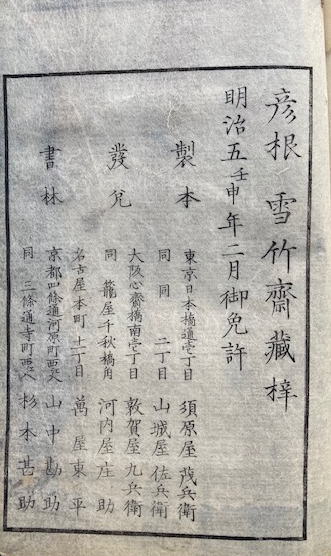 彦根 雪竹齋藏梓
明治五壬申年二月御免許
製本
發兌
書林
東京日本橋通壱丁目 須原屋茂兵衛
同 同 二丁目 山城屋佐兵衛
大阪心齋橋南壱丁目 敦賀屋九兵衛
同 籠屋千秋橋角 河内屋庄助
名古屋本町十二丁目 萬屋東平
京都四條通河原町西入 山中勘助
同 三條通寺町西入 杉本甚助